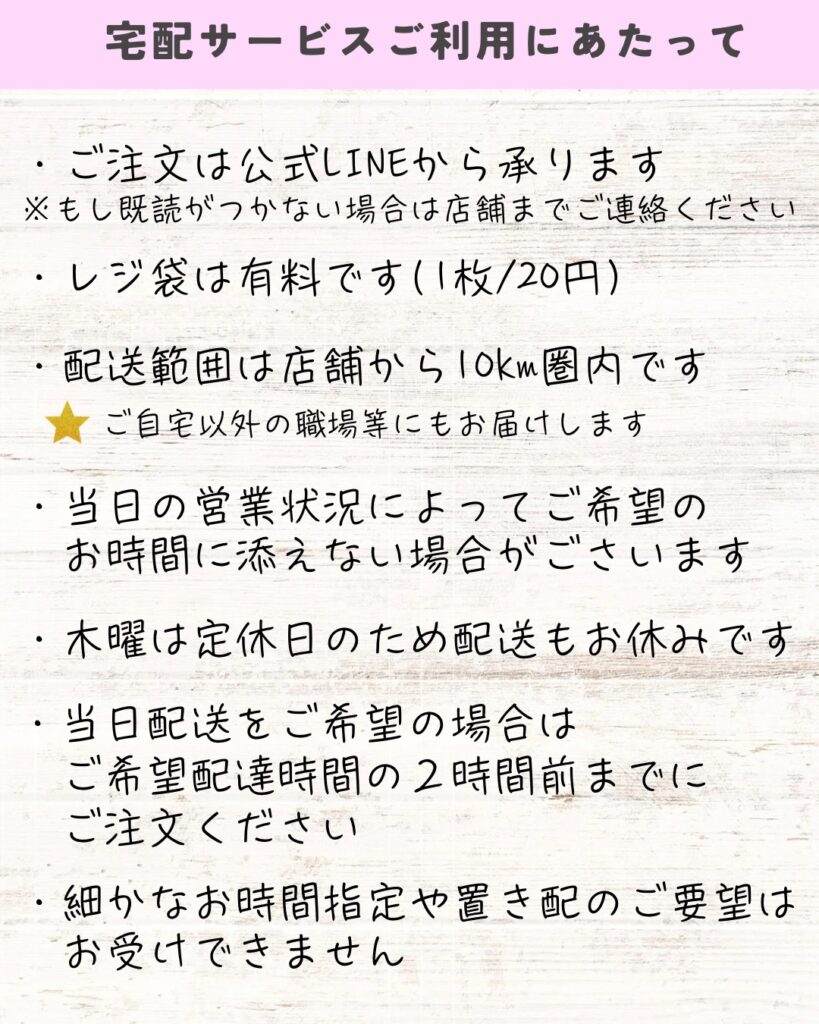 宅配サービスご利用にあたって
・ご注文は公式LINEから承ります
※もし既読がつかない場合は店舗までご連絡ください
・レジ袋は有料です(1枚/20円)
・配送範囲は店舗から10km圏内です
ご自宅以外の職場等にもお届けします
・当日の営業状況によってご希望の
お時間に添えない場合がごさいます
・木曜は定休日のため配送もお休みです
・当日配送をご希望の場合は
ご希望配達時間の2時間前までに
ご注文ください
・細かなお時間指定や置き配のご要望は
お受けできません